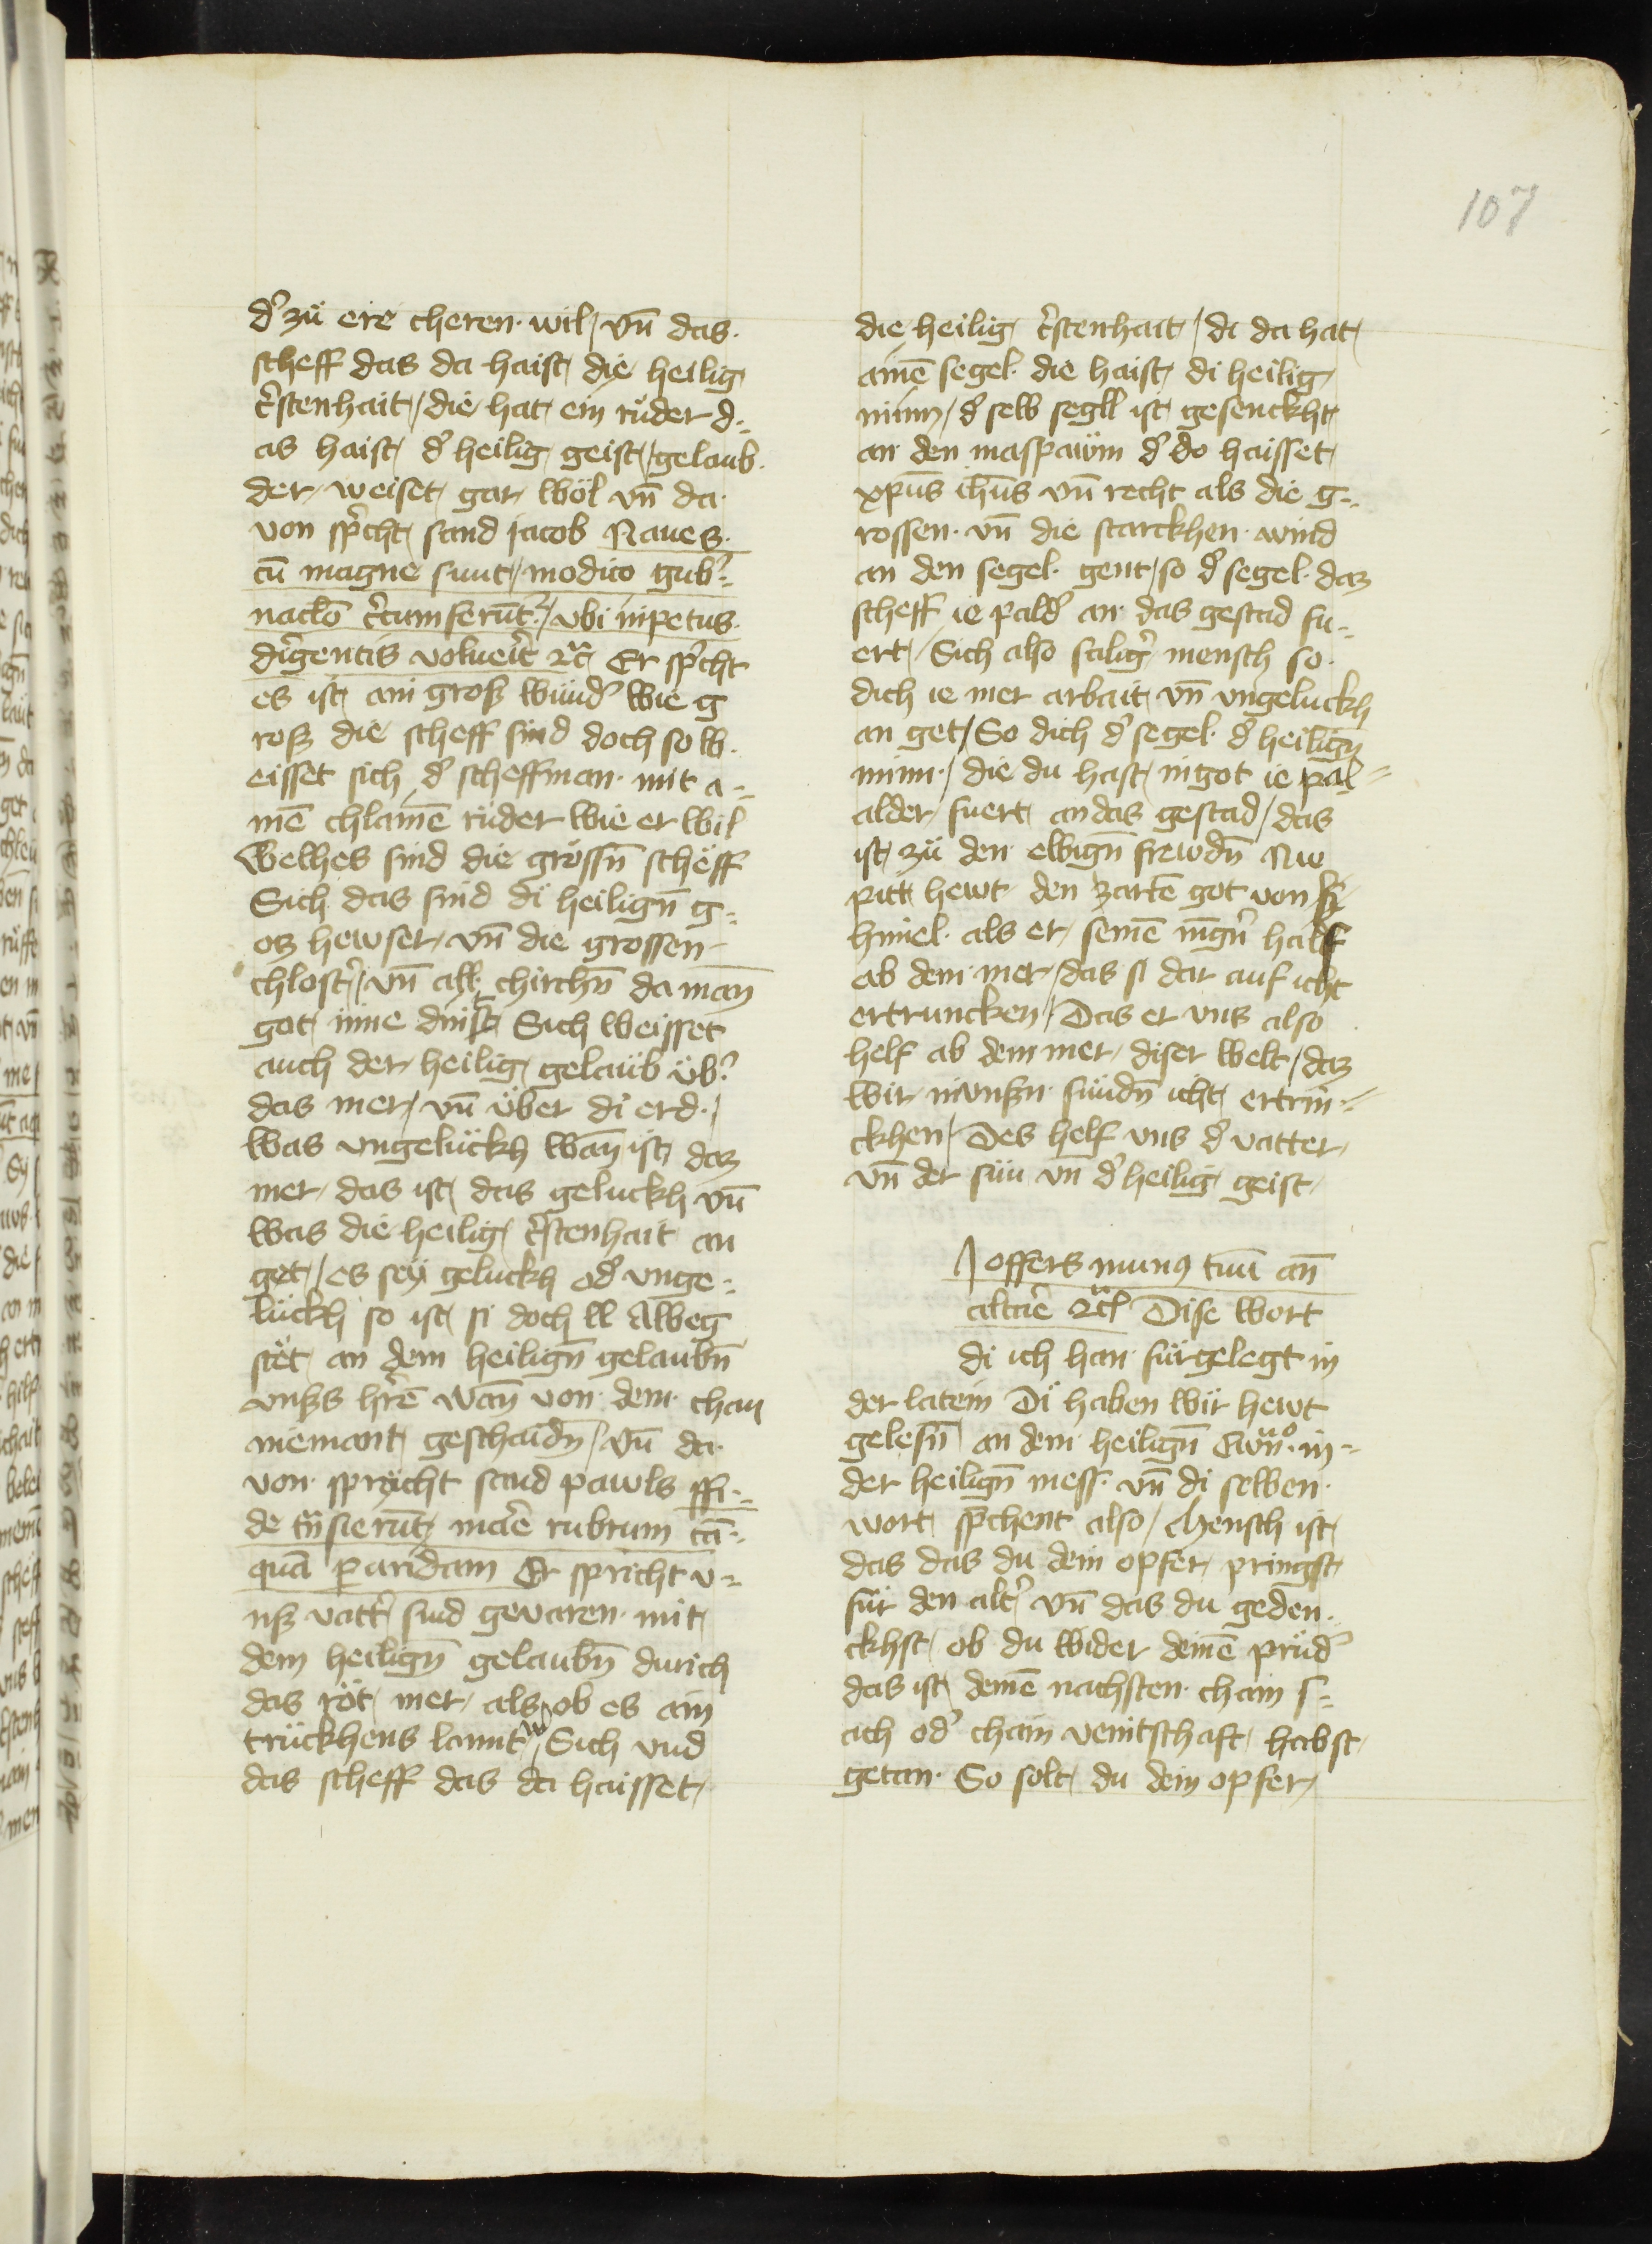 107
d' zü ere cheren · wil / vn̄ das ·
scheff das da haist die heilig
c̓stenhait / die hat ein rüder d=
as haist d' heilig geist / gelaub ·
der weiset gar wöl vn̄ da ·
von sp̓cht sand jacob Naues ·
cū magne sunt / modico gub̓=
nac̄lo c̓cumferūt̓ / vbi inpetus ·
dirigentis voluerit ꝛc̃ Er sp̓cht
es ist ain gross wund' wie g
ross die scheff sind doch so w ·
eisset sich d' scheffman · mit a=
mē chlainē rüder wie er wil
Welhes sind die grössn̄ scheff
Sich das sind di heilign̄ g=
oz hewser vn̄ die grossen
chlost̓ / vn̄ all chirchn̄ da man
got inne dinst Sich weisset
auch der heilig gelaub üb̓
das mer / vn̄ über di erd · /
Was vngelückh wan̄ ist daz
mer / das ist das geluckh vn̄
was die heilig c̓stenhait an
get / es sey geluckh od' vnge=
lückh so ist si doch ll Albeg
stët an dem heilign̄ gelaubn̄
vnss hr̄ē wan̄ von dem · chan
niemant geschaidn̄ / vn̄ da ·
von · spricht sand pawls ffi=
de tn̄sierūt mare rubrum tā=
quā p aridam Er spricht v=
nss vatt̓ sind gevaren · mit
dem heilign̄ gelaubn̄ durich
das röt mer / als ob es ain
trückhens lannt w Sich vnd
das scheff das da haisset
die heilig c̓stenhait / di da hat
ainē segel · die haist di heilig
minn / d' selb segll ist gesenckht
an den maspawm d' do haisset
xp̄us ih̄us vn̄ recht als die g=
rossen · vn̄ die starckhen · wind
an den segel · gent / so d' segel · daz
scheff ie pald' an das gestad fu=
ert / Sich also salig̓ mensch so ·
dich ie mer arbait vn̄ vngeluckh
an get / So dich d' segel · d' heilign̄
minn · / die du hast in got ie pal=
alder fuert an das gestad / das
ist zü den ewign̄ frewdn̄ Nu
pitt hewt den zartē got von
himel · als er seinē iūg̓n half
ab dem mer / das si dar auf icht
ertruncken / Das er vns also
helf ab dem mer / diser welt / daz
wir in vnsn̄ · sündn̄ icht ertrin=
ckhen / Des helf vns d' vatter
vn̄ der sün vn d' heilig geist
I offers munꝰ tuū an̄
altare ꝛc̃ Dise wort
di ich han fürgelegt in
der latein Di haben wir hewt
gelesn̄ an dem heilign̄ Ewn̄o · in=
der heilign̄ mess · vn̄ di selben ·
wort sp̓chent also / Mensch ist
das das du dein opfer pringst
für den alt̓ vn̄ das du geden=
ckhst ob du wider deinē prüd'
das ist deinē nachsten · chain s=
ach od' chain veintschaft habst
getan · So solt du dein opfer